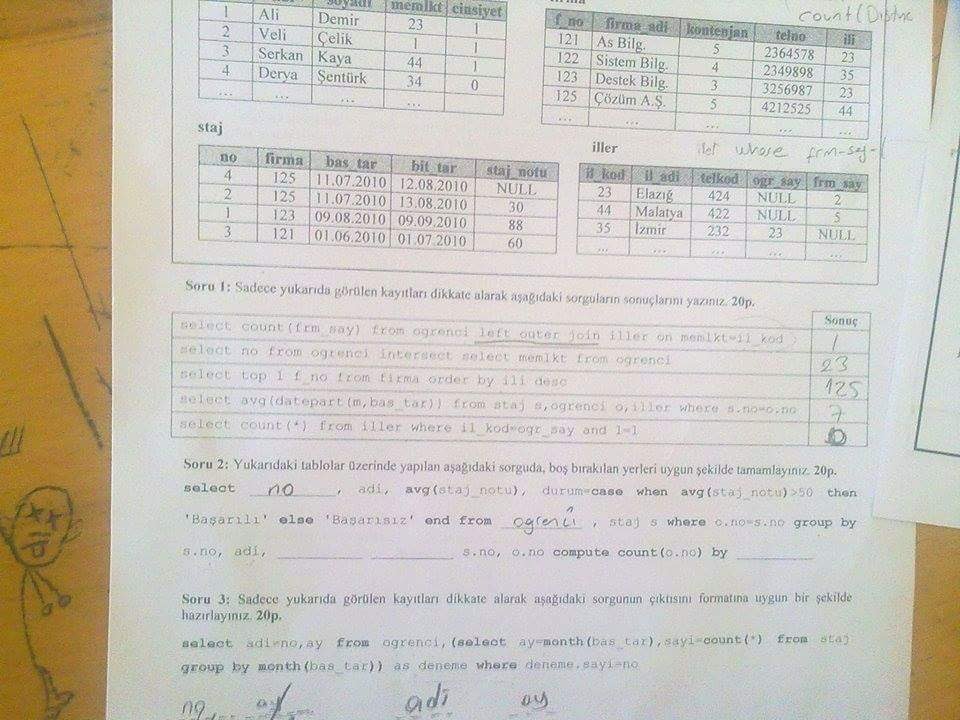 soyadı memlkt cinsiyet
1 Ali Demir 23 1
2 Veli Çelik 1 1
3 Serkan Kaya 44 1
4 Derya Şentürk 34 0
... ... ... ...
count(Distinc
f_no firma_adi kontenjan telno ili
121 As Bilg. 5 2364578 23
122 Sistem Bilg. 4 2349898 35
123 Destek Bilg. 3 3256987 23
125 Çözüm A.Ş. 5 4212525 44
... ... ... ... ...
staj
no firma bas_tar bit_tar staj_notu
4 125 11.07.2010 12.08.2010 NULL
2 125 11.07.2010 13.08.2010 30
1 123 09.08.2010 09.09.2010 88
3 121 01.06.2010 01.07.2010 60
iller
whose frm-say-
il_kod il_adi telkod ogr_say frm_say
23 Elazığ 424 NULL 2
44 Malatya 422 NULL 5
35 İzmir 232 23 NULL
... ... ... ... ...
Soru 1: Sadece yukarıda görülen kayıtları dikkate alarak aşağıdaki sorguların sonuçlarını yazınız. 20p.
Sonuç
select count(frm_say) from ogrenci left outer join iller on memlkt=il_kod 1
select no from ogrenci intersect select memlkt from ogrenci 23
select top 1 f_no from firma order by ili desc 125
select avg(datepart(m,bas_tar)) from staj s,ogrenci o,iller where s.no=o.no 7
select count(*) from iller where il_kod=ogr_say and 1=1 0
Soru 2: Yukarıdaki tablolar üzerinde yapılan aşağıdaki sorguda, boş bırakılan yerleri uygun şekilde tamamlayınız. 20p.
select no, adi, avg(staj_notu), durum=case when avg(staj_notu)>50 then
'Başarılı' else 'Başarısız' end from ogrenci, staj s where o.no=s.no group by
s.no, adi, ________ ________ s.no, o.no compute count(o.no) by ________
Soru 3: Sadece yukarıda görülen kayıtları dikkate alarak aşağıdaki sorgunun çıktısını formatına uygun bir şekilde
hazırlayınız. 20p.
select adi=no,ay from ogrenci,(select ay=month(bas_tar),sayi=count(*) from staj
group by month(bas_tar)) as deneme where deneme.sayi=no
no ay adi ay